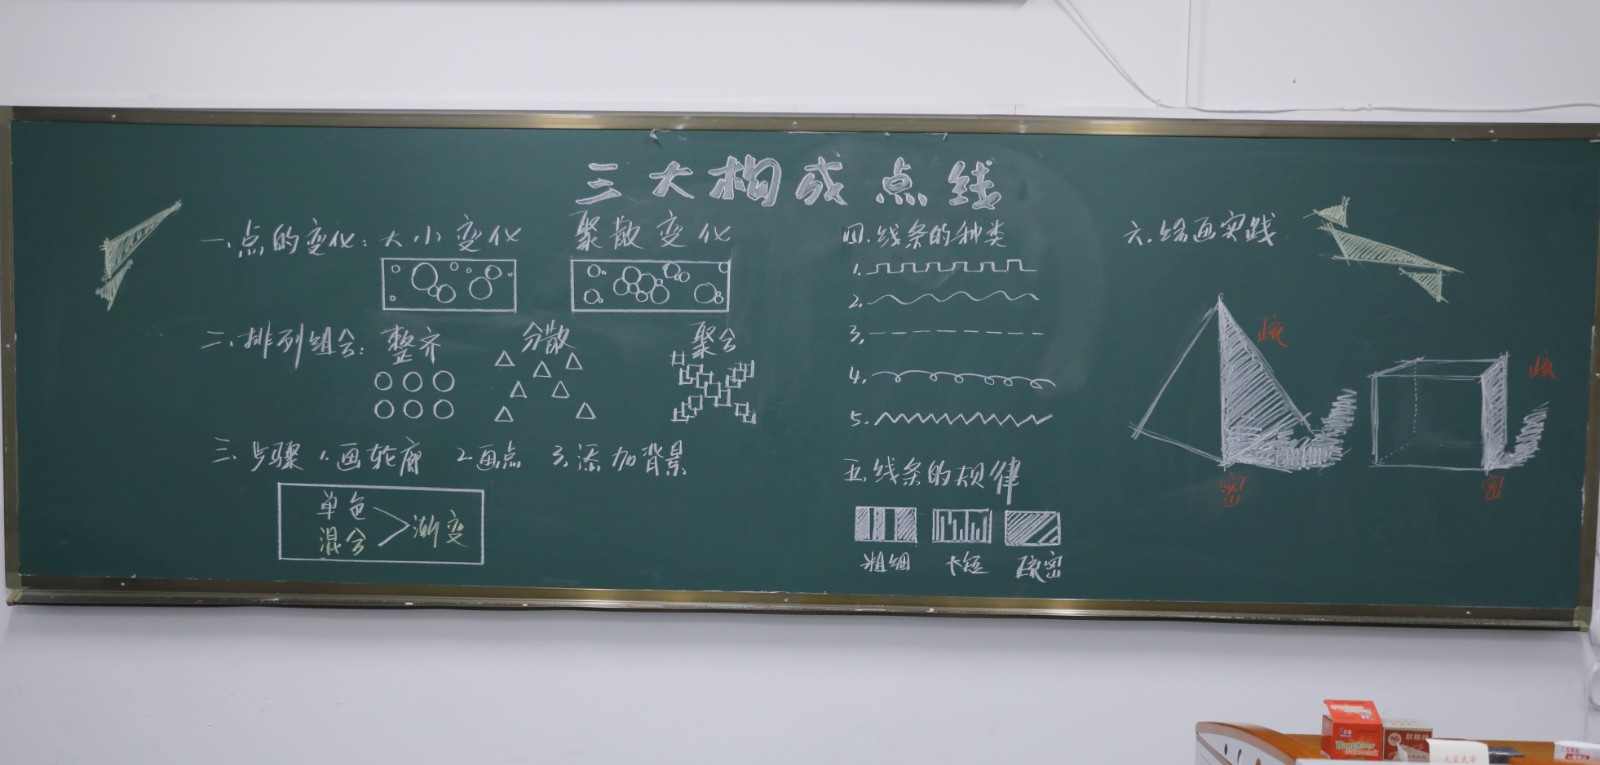 三大构成点线
一、点的变化：大小变化 聚散变化
二、排列组合：整齐 分散 聚合
三、步骤 1.画轮廓 2.画点 3.添加背景
单色
混合 > 渐变
四.线条的种类
1.
2.
3.
4.
5.
五.线条的规律
粗细 长短 疏密
六.绘画实践
疏
密
疏
密